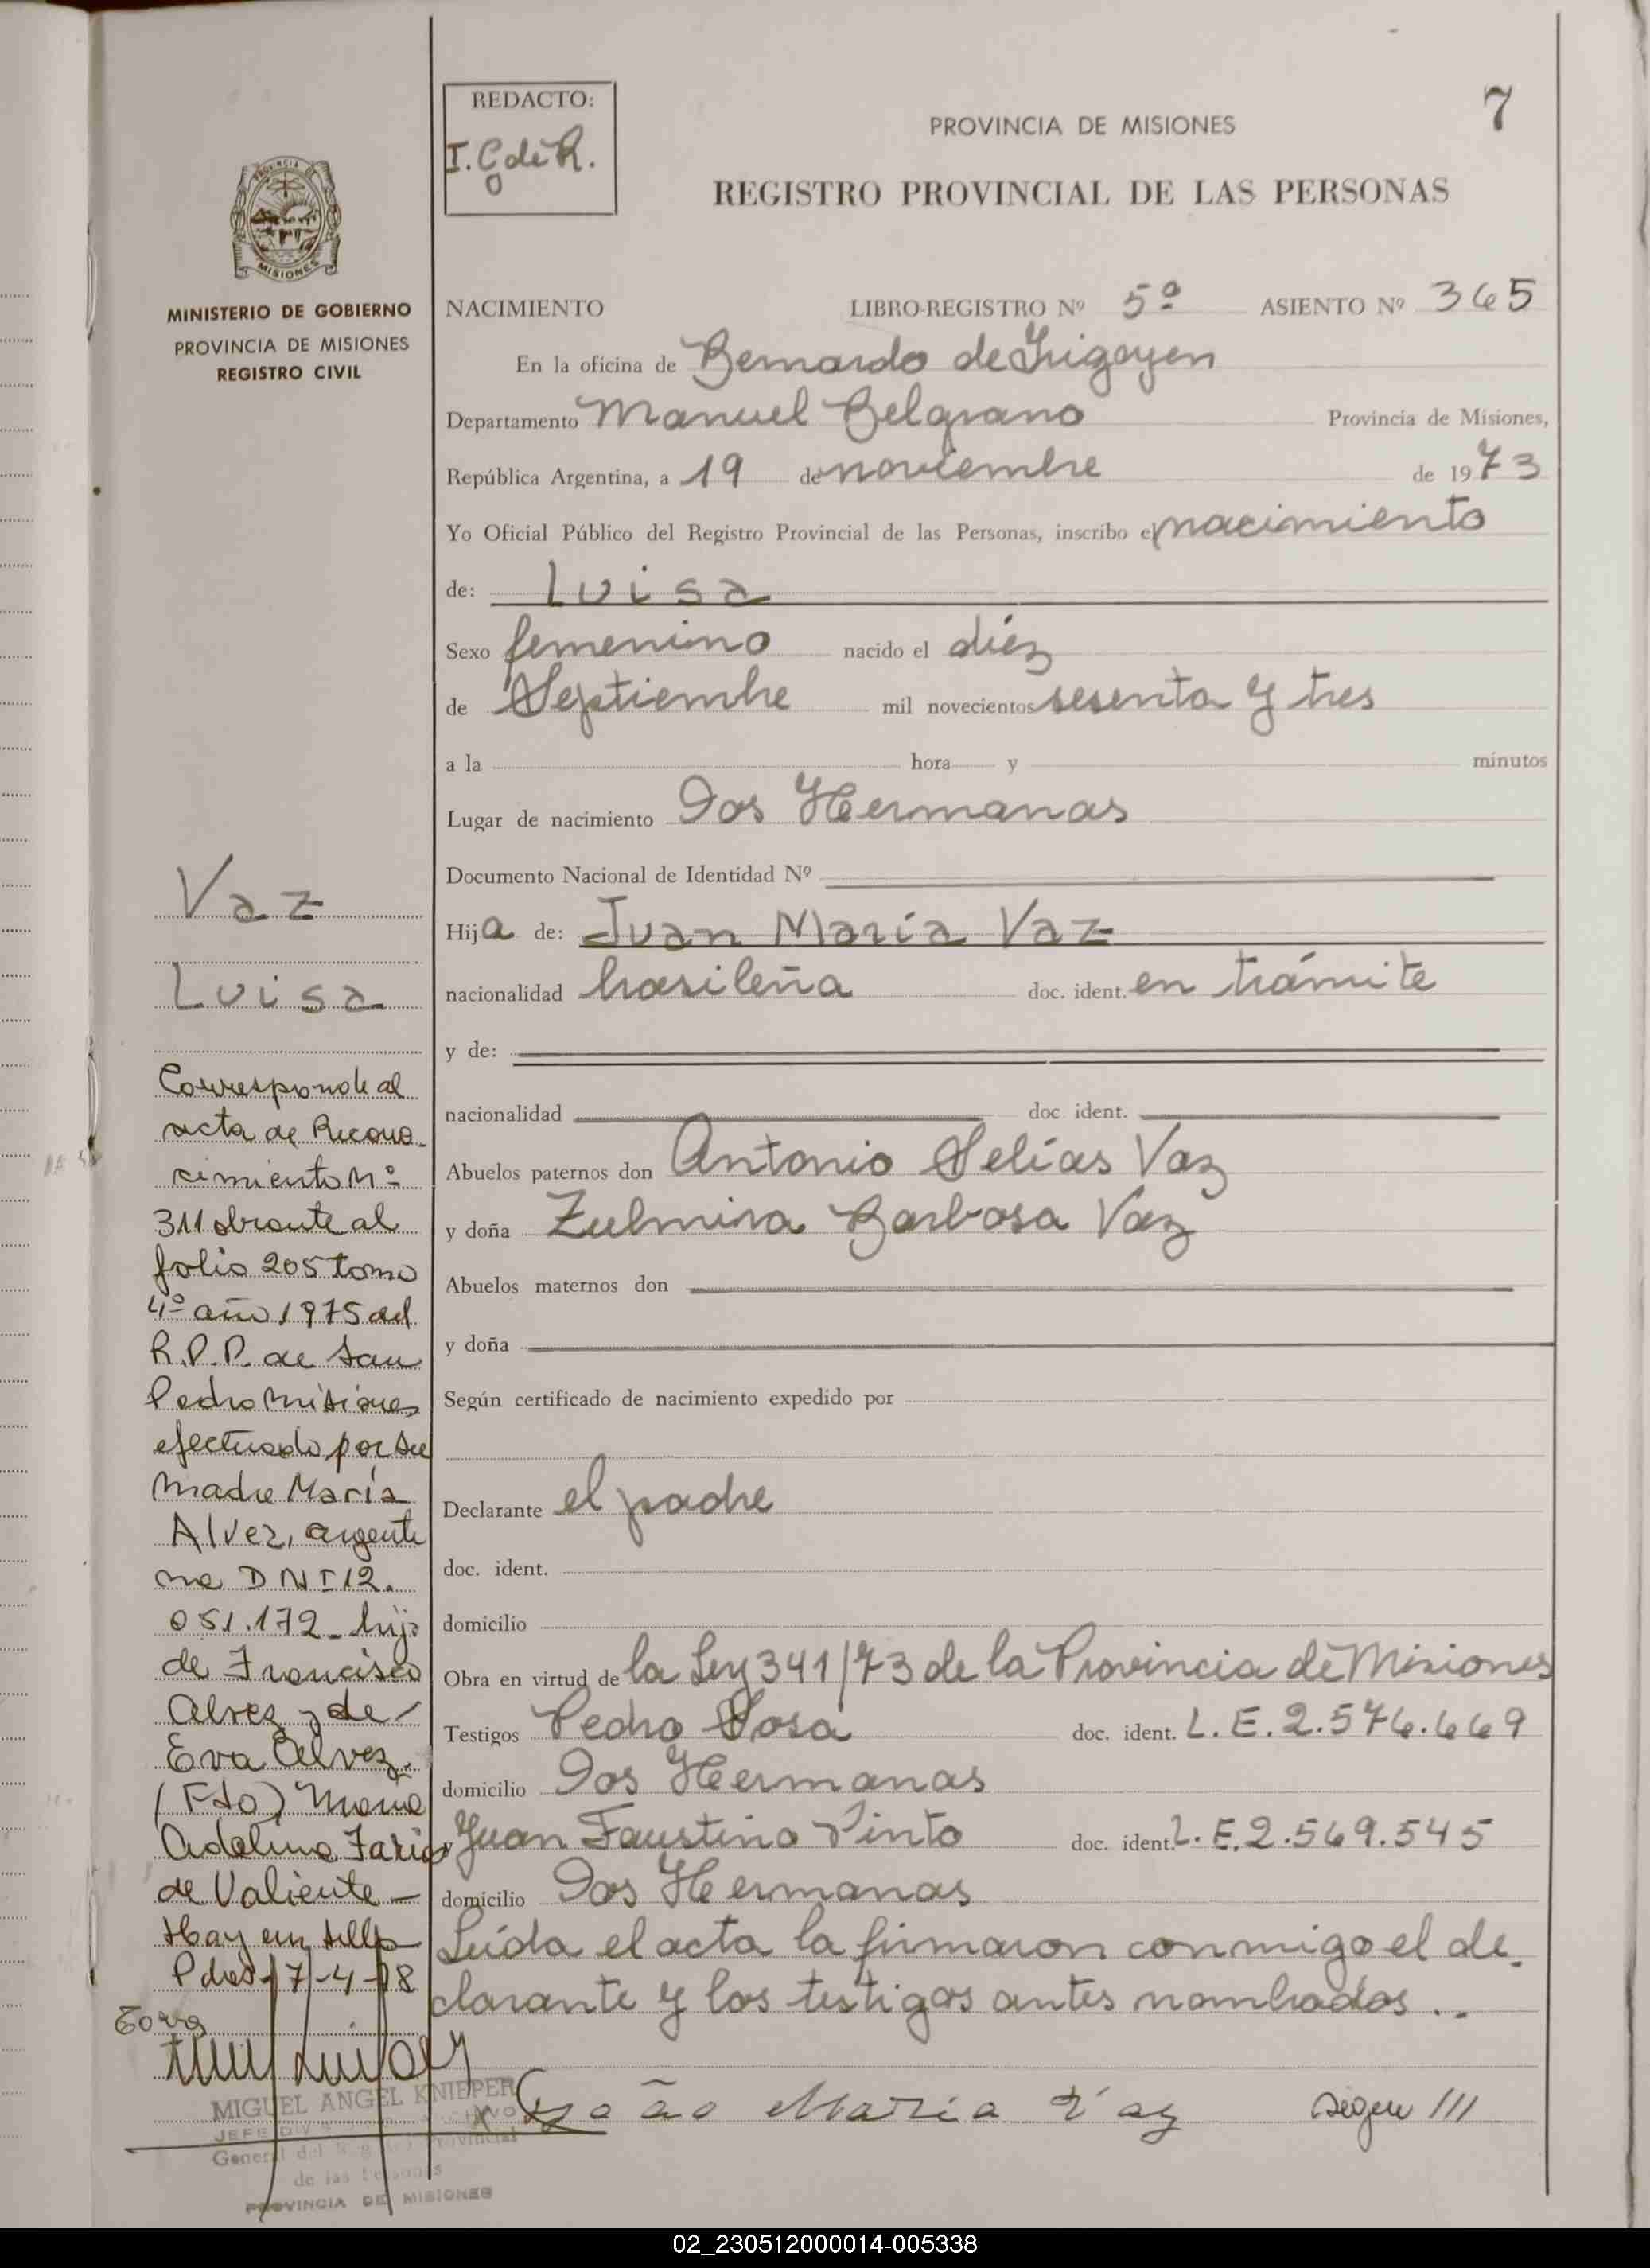 7
REDACTO:
I. C de R.
PROVINCIA DE MISIONES
REGISTRO PROVINCIAL DE LAS PERSONAS
MISIONES
MINISTERIO DE GOBIERNO
PROVINCIA DE MISIONES
REGISTRO CIVIL
NACIMIENTO LIBRO-REGISTRO Nº 5º ASIENTO Nº 365
En la oficina de Bernardo de Irigoyen
Departamento Manuel Belgrano Provincia de Misiones,
República Argentina, a 19 de noviembre de 1973
Yo Oficial Público del Registro Provincial de las Personas, inscribo el nacimiento
de: Luisa
Sexo femenino nacido el diéz
de Septiembre mil novecientos sesenta y tres
a la hora y minutos
Lugar de nacimiento Dos Hermanas
Documento Nacional de Identidad Nº
Hija de: Juan María Vaz
nacionalidad brasileña doc. ident. en trámite
y de:
nacionalidad doc. ident.
Abuelos paternos don Antonio Selías Vaz
y doña Zulmira Barbosa Vaz
Abuelos maternos don
y doña
Según certificado de nacimiento expedido por
Declarante el padre
doc. ident.
domicilio
Obra en virtud de la Ley 341/73 de la Provincia de Misiones
Testigos Pedro Sosa doc. ident. L.E.2.576.669
domicilio Dos Hermanas
y Juan Faustino Pinto doc. ident. L.E.2.569.545
domicilio Dos Hermanas
Leída el acta la firmaron conmigo el de
clarante y los testigos antes nombrados..
João Maria Vaz sigue ///
Vaz
Luisa
Corresponde al
acta de Recono-
cimiento Nº
311 obrante al
folio 205 tomo
4º año 1975 del
R.P.P. de San
Pedro Misiones
efectuado por su
madre María
Alvez, argenti
na DNI 12.
051.172_ hija
de Francisco
Alvez y de
Eva Alvez.
(Fdo) María
Adelina Farias
de Valiente_
Hay un sello
Pdas 17-4-78
MIGUEL ANGEL KNIEPER
JEFE
General del Registro Provincial
de las Personas
PROVINCIA DE MISIONES
02_230512000014-005338